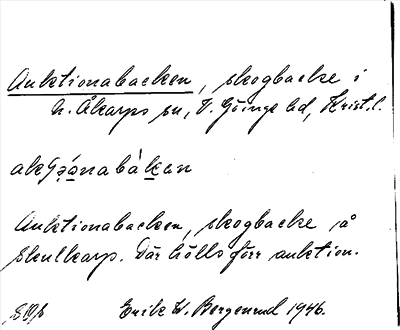 Auktionabacken, skogbacke i
N. Åkarps sn, V. Göinge hd, Krist. l.
Auktionabacken, skogbacke å
Skullkarp. Där hölls förr auktion.
Erik W. Bergerund 1946.